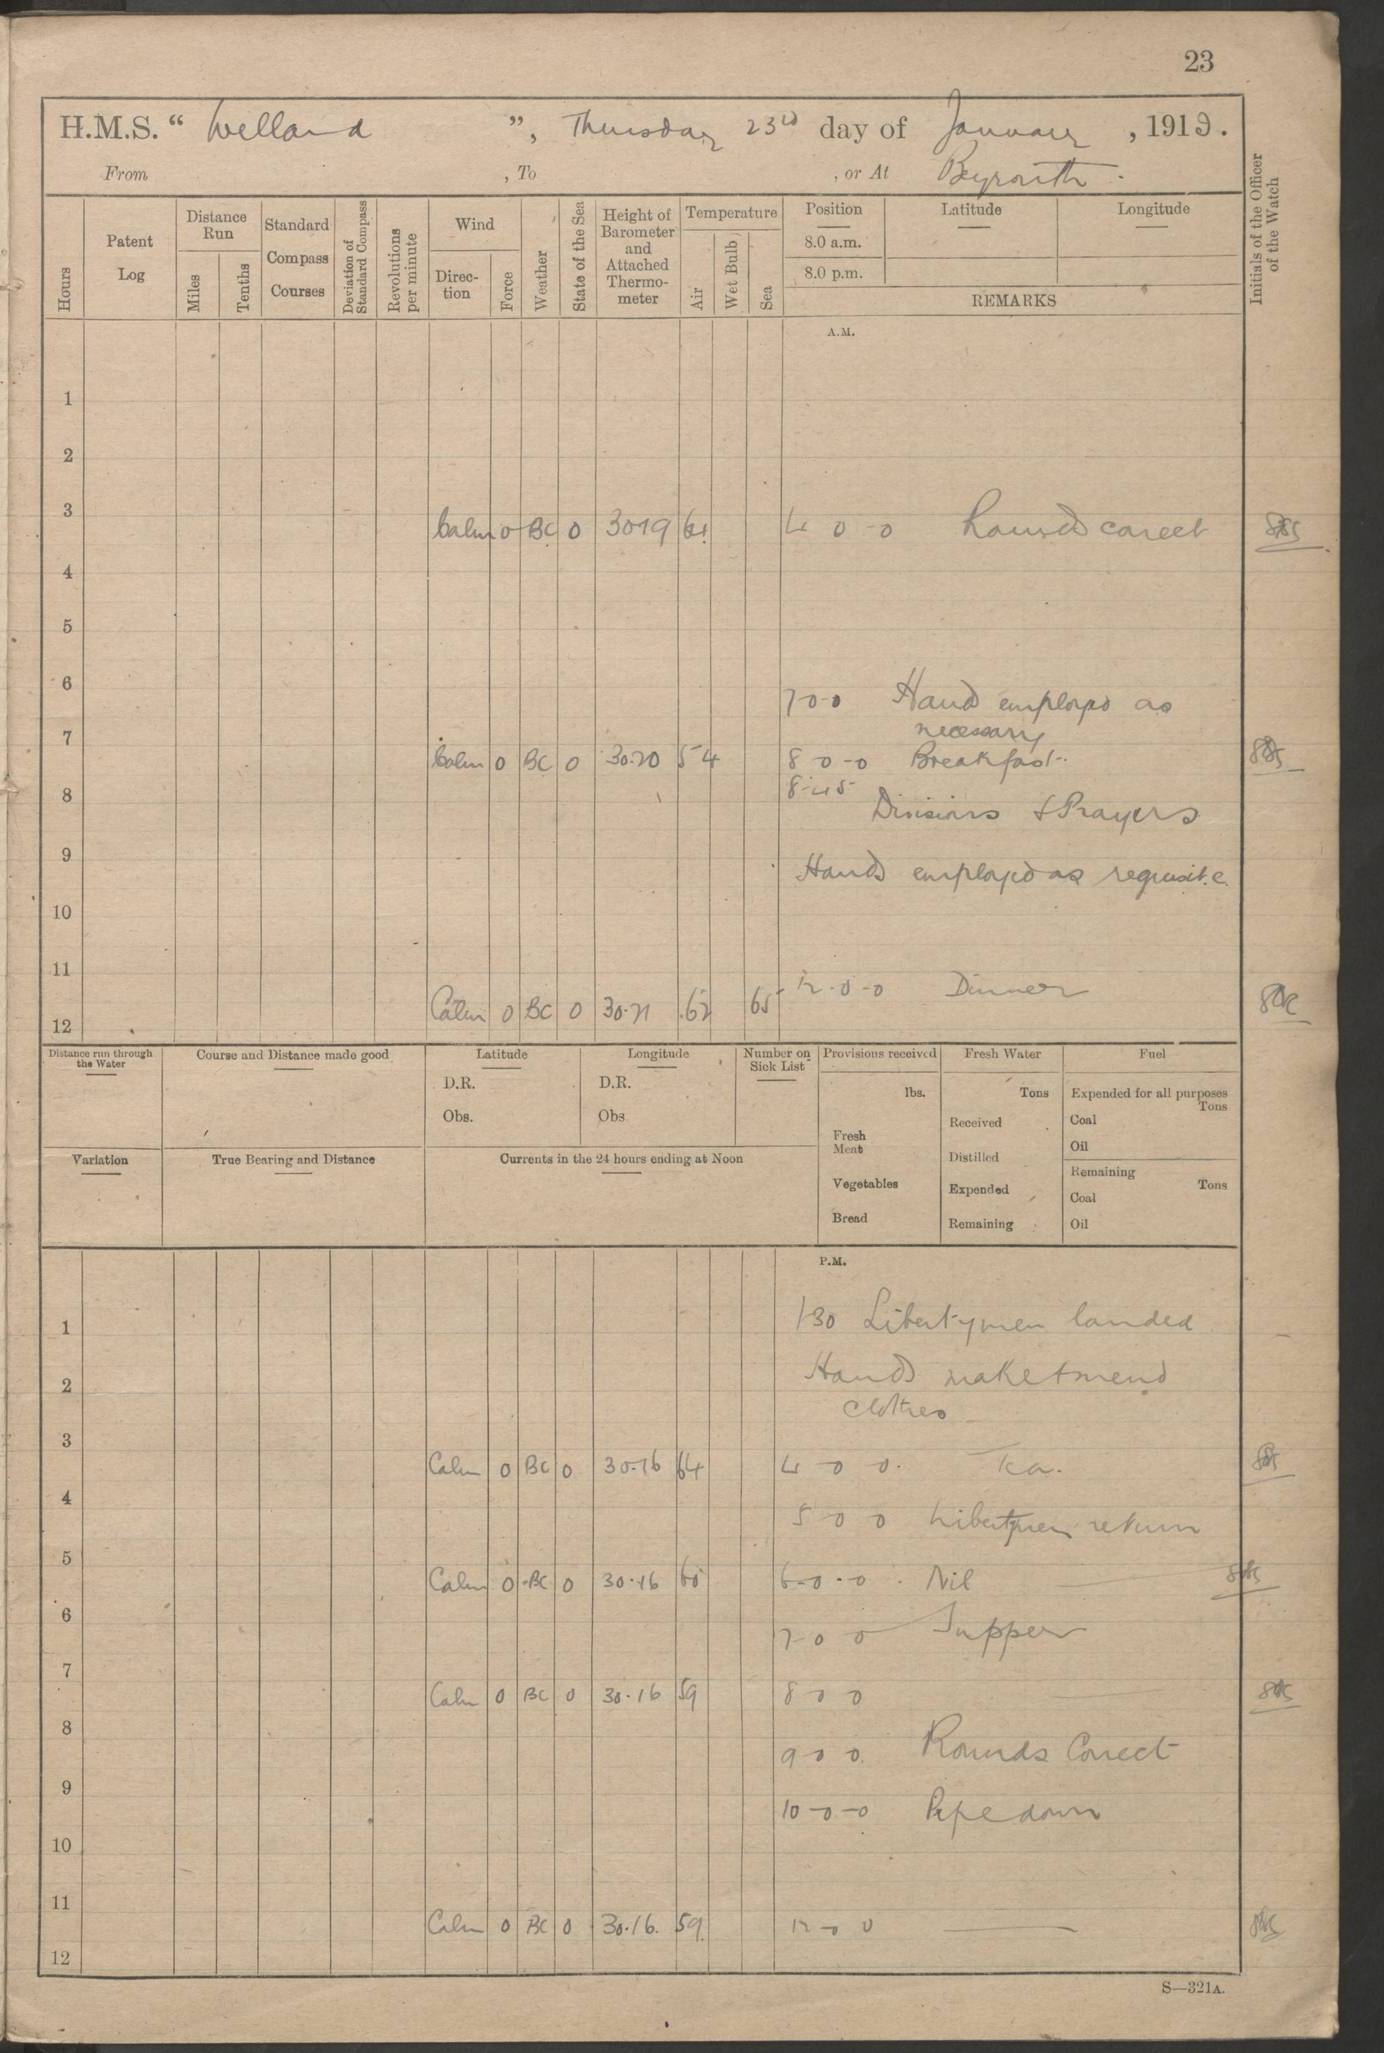 23
H.M.S. “ Welland ”, Thursday 23rd day of January , 1919.
From , To , or At Beyrouth.
Hours
Patent Log
Distance Run
Miles
Tenths
Standard Compass Courses
Deviation of Standard Compass
Revolutions per minute
Wind
Direc-tion
Force
Weather
State of the Sea
Height of Barometer and Attached Thermo-meter
Temperature
Air
Wet Bulb
Sea
Position Latitude Longitude
8.0 a.m.
8.0 p.m.
REMARKS
Initials of the Officer of the Watch
A.M.
1
2
3
Calm 0 BC 0 3019 61 4 0-0 Rounds correct
4
5
6
7 0-0 Hands employed as
necessary
7
Calm 0 BC 0 30.20 54 8-0-0 Breakfast.
8-45
8
Divisions & Prayers
9
Hands employed as requisite
10
11
12.0-0 Dinner
Calm 0 BC 0 30.21 62 65
12
Distance run through the Water
Course and Distance made good
Latitude
D.R.
Obs.
Longitude
D.R.
Obs
Number on Sick List
Provisions received
lbs.
Fresh Meat
Vegetables
Bread
Fresh Water
Tons
Received
Distilled
Expended
Remaining
Fuel
Expended for all purposes
Tons
Coal
Oil
Remaining
Tons
Coal
Oil
Variation
True Bearing and Distance
Currents in the 24 hours ending at Noon
P.M.
1 1-30 Libertymen landed
2 Hands make & mend
clothes
3
Calm 0 BC 0 30.16 64 4-0 0. Tea.
4
5 0 0 Libertymen return
5
Calm 0 BC 0 30.16 60 6-0-0. Nil
6
7-0 0 Supper
7
Calm 0 BC 0 30.16 59 8 0 0
8
9 0 0. Rounds Correct
9
10-0-0 Pipe down
10
11
Calm 0 BC 0 30.16. 59. 12-0 0
12
S—321A.